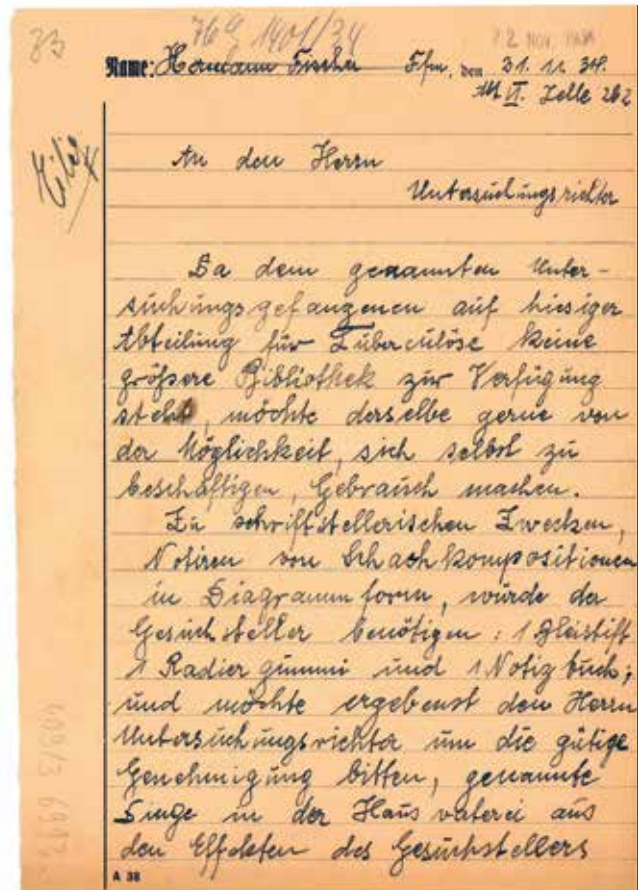 33
76 G 1401/34
12 NOV. 1934
Name: Hermann Fischer Ffm, den 31. 11. 34.
VI. Zelle 262
Eilt
An den Herrn
Untersuchungsrichter
Da dem genannten Unter-
suchungsgefangenen auf hiesiger
Abteilung für Tuberculöse keine
größere Bibliothek zur Verfügung
steht, möchte derselbe gerne von
der Möglichkeit, sich selbst zu
beschäftigen, Gebrauch machen.
Zu schriftstellerischen Zwecken,
Notiren von Schachkompositionen
in Diagrammform, würde der
Gesuchsteller benötigen: 1 Bleistift
1 Radiergummi und 1 Notizbuch;
und möchte ergebenst den Herrn
Untersuchungsrichter um die gütige
Genehmigung bitten, genannte
Dinge in der Hausvaterei aus
den Effekten des Gesuchstellers
A 38